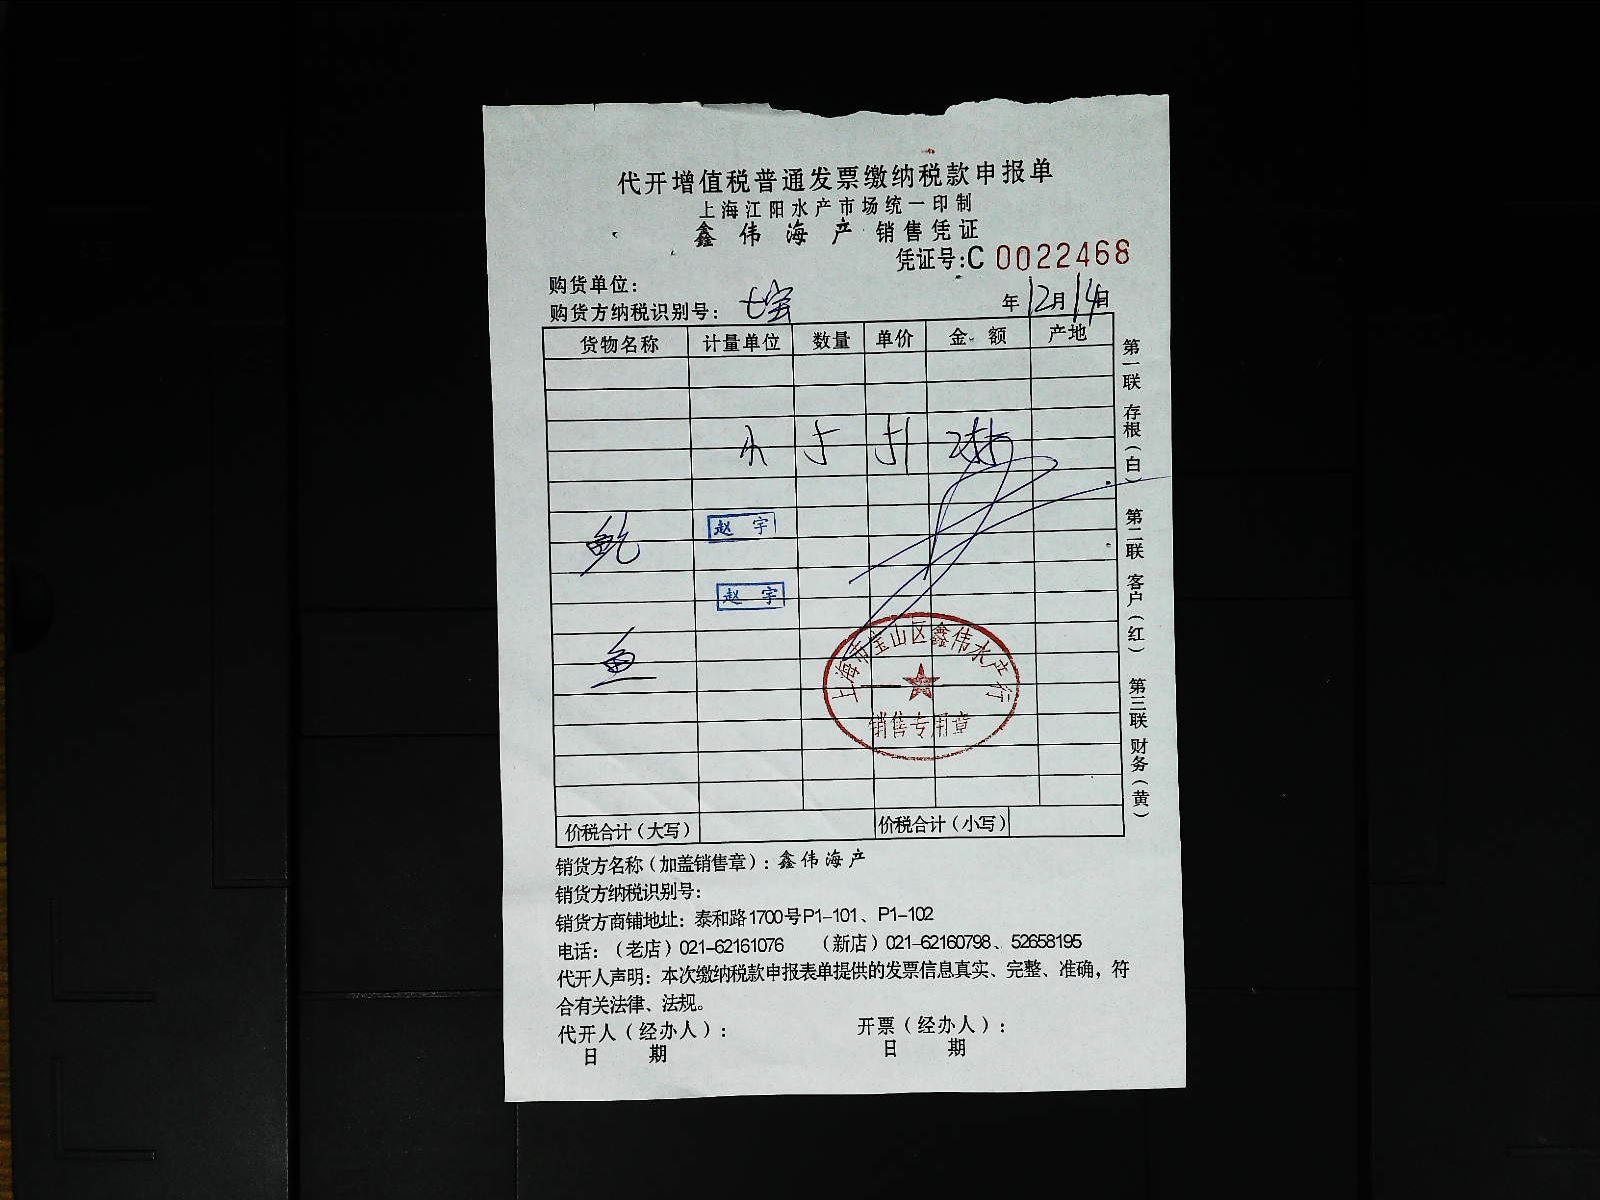 代开增值税普通发票缴纳税款申报单
上海江阳水产市场统一印制
鑫伟海产 销售凭证
凭证号:C 0022468
购货单位:
购货方纳税识别号: 七宝 年12月14日
货物名称 计量单位 数量 单价 金额 产地
赵宇
赵宇
鱼
上海市宝山区鑫伟水产行
销售专用章
价税合计(大写) 价税合计(小写)
第一联 存根(白) 第二联 客户(红) 第三联 财务(黄)
销货方名称(加盖销售章): 鑫伟海产
销货方纳税识别号:
销货方商铺地址: 泰和路1700号P1-101、P1-102
电话:(老店)021-62161076 (新店)021-62160798、52658195
代开人声明: 本次缴纳税款申报表单提供的发票信息真实、完整、准确,符
合有关法律、法规。
代开人(经办人): 开票(经办人):
日期 日期